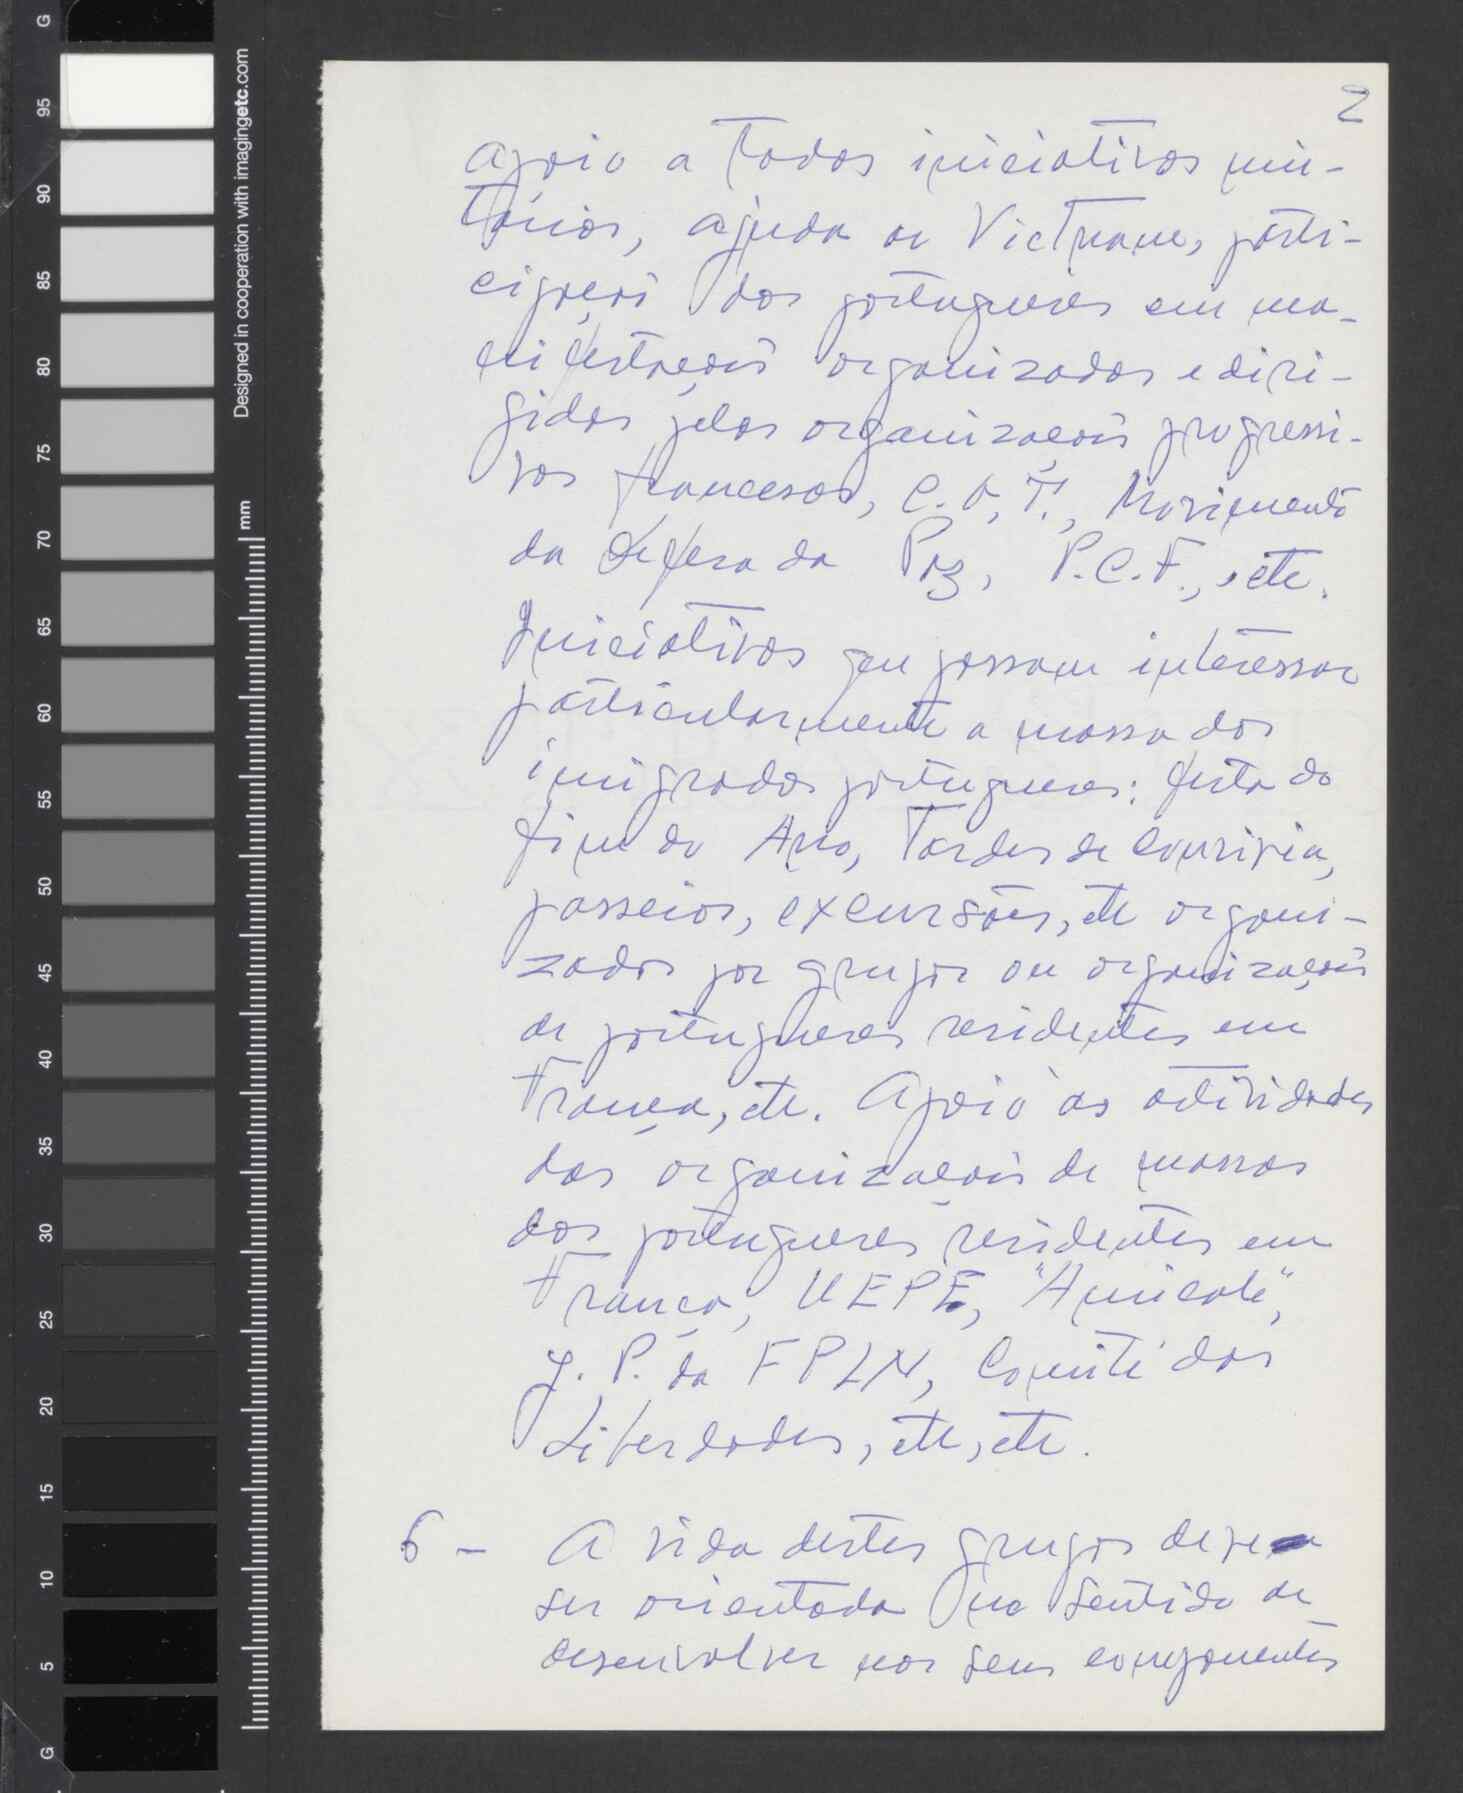 2
apoio a todas iniciativas uni-
tárias, ajuda ao Vietname, parti-
cipação dos portugueses em ma-
nifestações organizadas e diri-
gidas pelas organizações progressi-
vas francesas, C.G.T., Movimento
da defesa da Paz, P.C.F., etc.
Iniciativas que possam interessar
particularmente a massa dos
imigrados portugueses: festa do
fim do Ano, Tardes de convivia,
passeios, excursões, etc organi-
zados por grupos ou organizações
de portugueses residentes em
França, etc. Apoio às actividades
das organizações de massas
dos portugueses residentes em
França, UEPE, "Amicale",
J. P. da FPLN, Comité das
Liberdades, etc, etc.
6 - A vida destes grupos deve
ser orientada no sentido de
desenvolver nos seus componentes
G
95
90
85
80
75
70
65
60
55
50
45
40
35
30
25
20
15
10
5
G
Designed in cooperation with imagingetc.com
mm